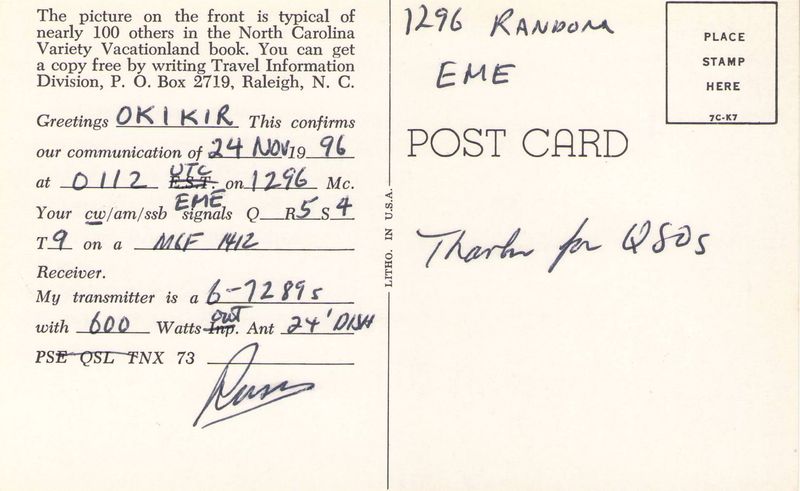 The picture on the front is typical of
nearly 100 others in the North Carolina
Variety Vacationland book. You can get
a copy free by writing Travel Information
Division, P. O. Box 2719, Raleigh, N. C.
Greetings OK1KIR This confirms
our communication of 24 NOV 19 96
UTC
at 0112 E.S.T. on 1296 Mc.
EME
Your cw/am/ssb signals Q R5 S4
T9 on a MGF 1412
Receiver.
My transmitter is a 6-7289s
out
with 600 Watts Inp. Ant 24' DISH
PSE QSL TNX 73
Russ
LITHO. IN U.S.A.
1296 RANDOM
EME
PLACE
STAMP
HERE
7C-K7
POST CARD
Thanks for QSOs